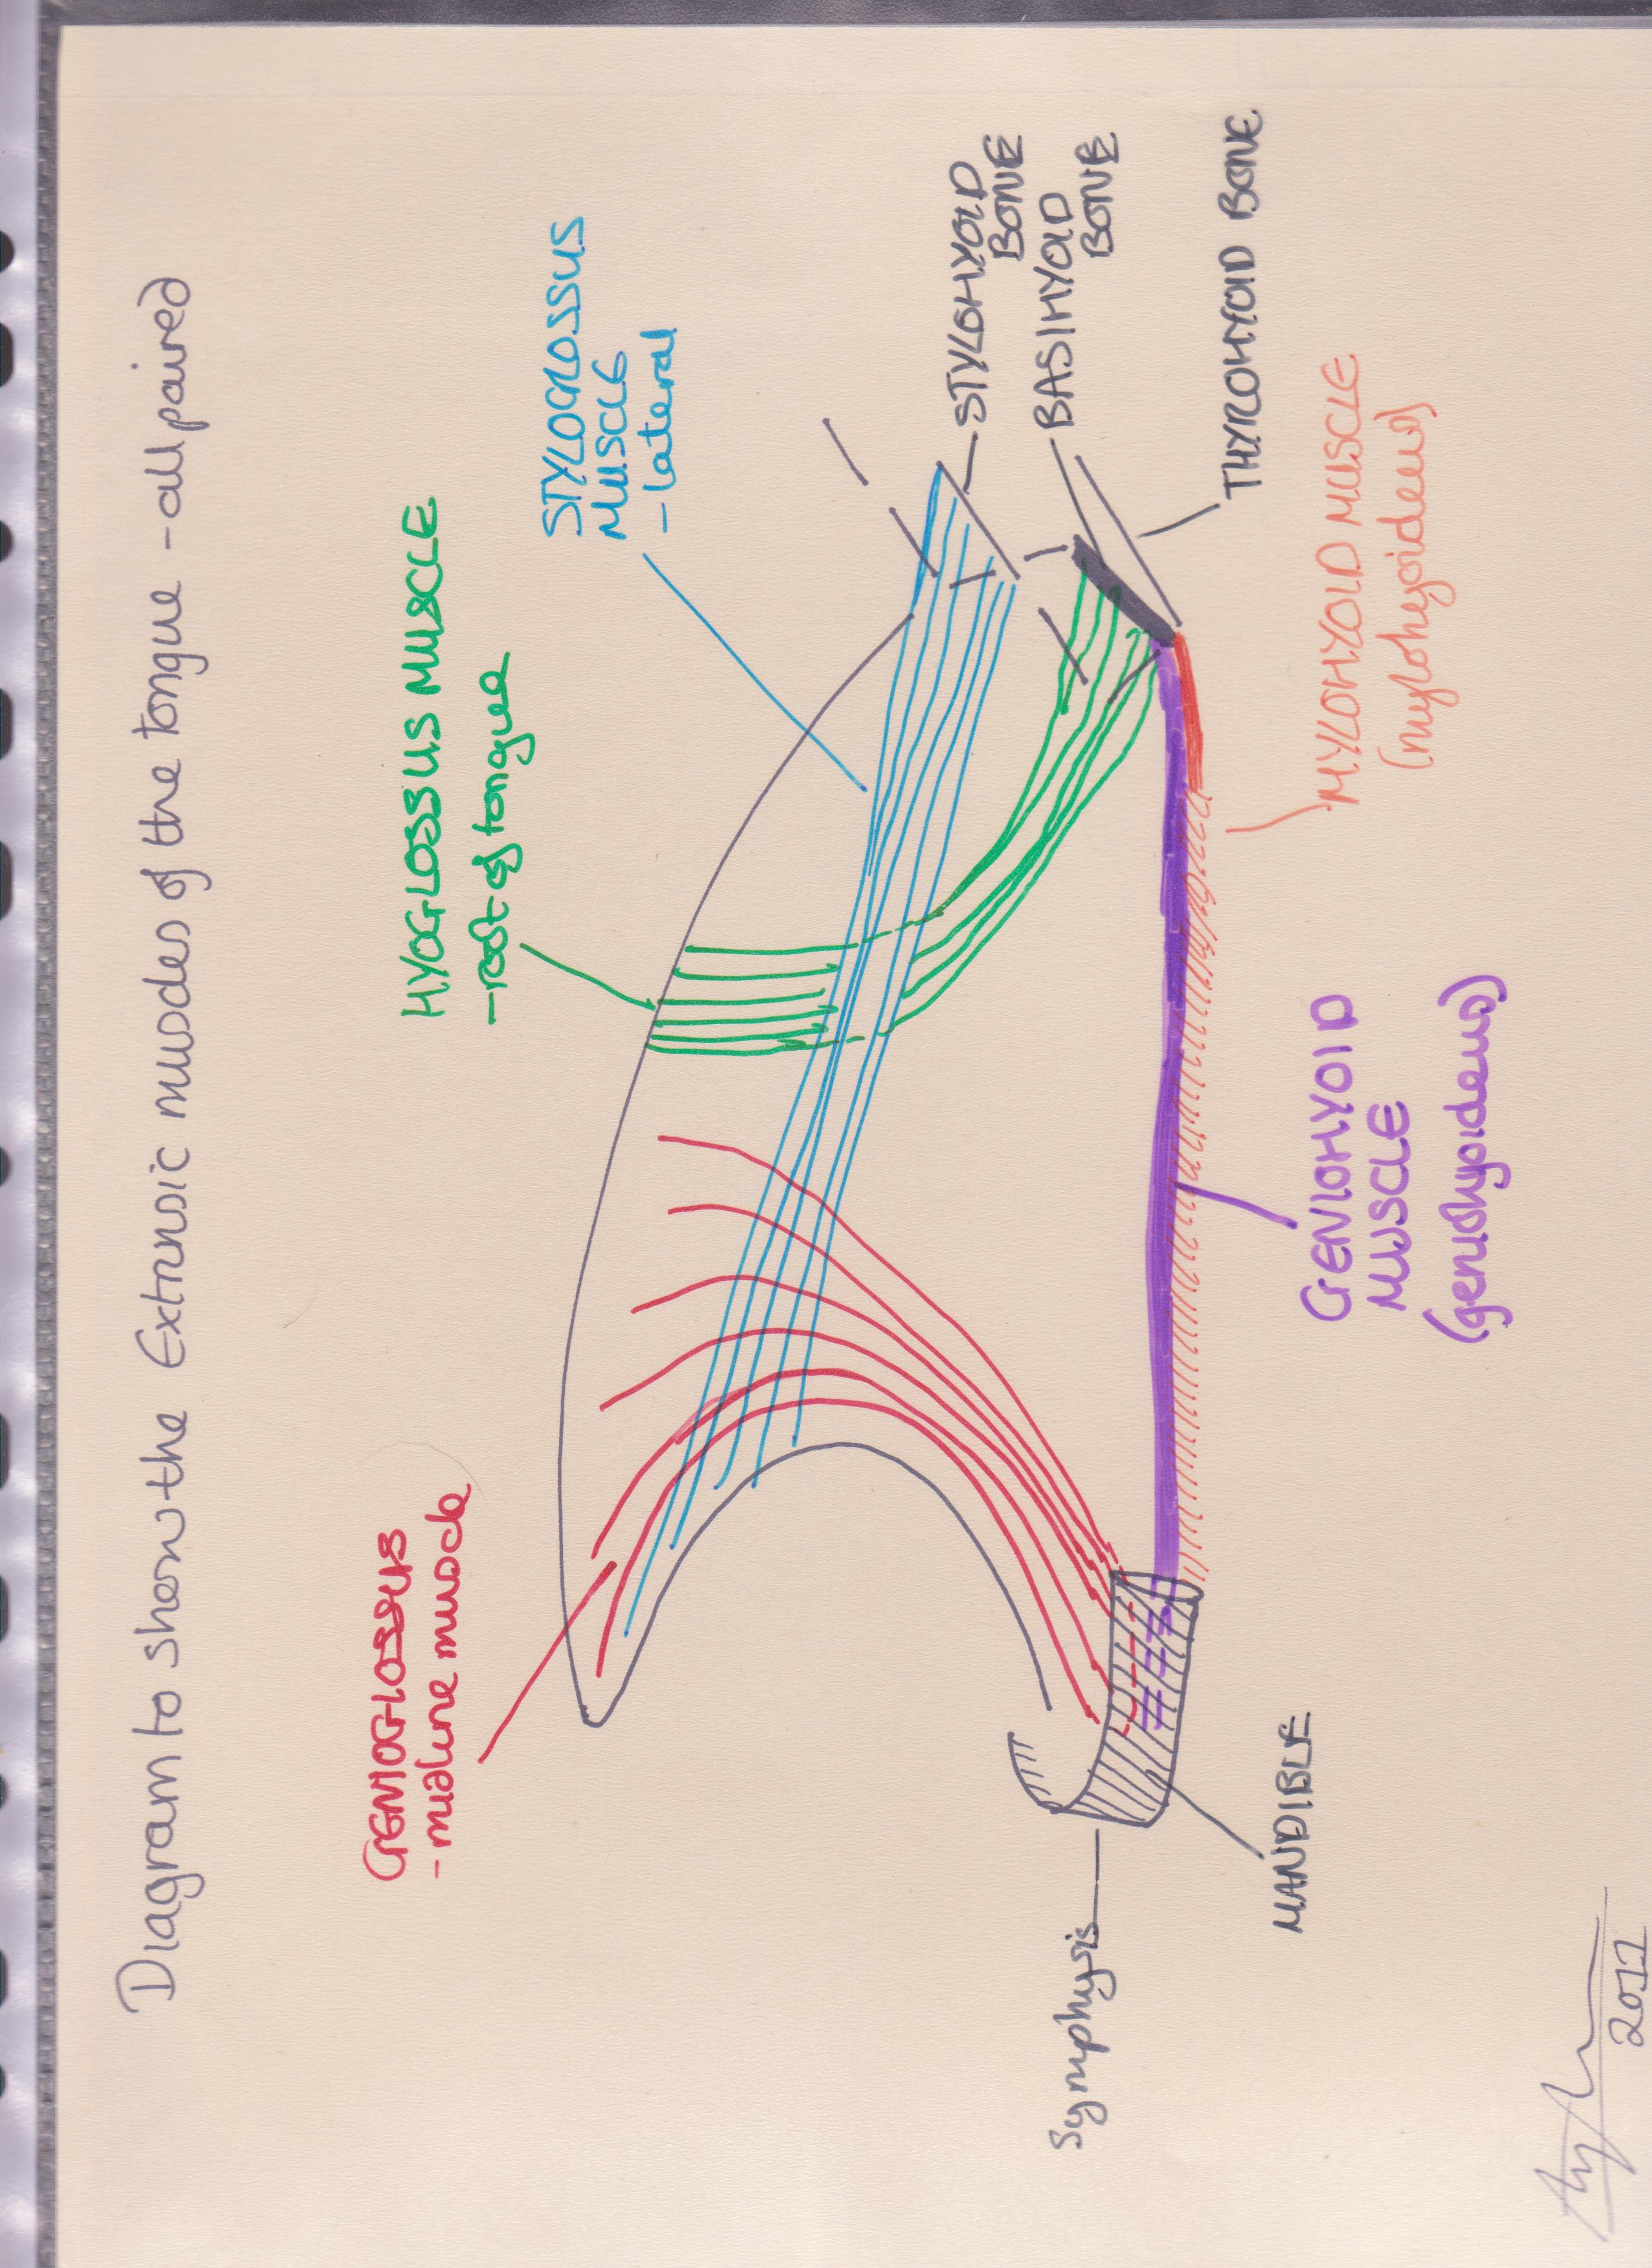 Diagram to show the Extrinsic muscles of the tongue - all paired
GENIOGLOSSUS
- midline muscle
HYOGLOSSUS MUSCLE
- root of tongue
STYLOGLOSSUS
MUSCLE
- lateral
STYLOHYOID
BONE
BASIHYOID
BONE
THYROHYOID BONE
MYLOHYOID MUSCLE
(mylohyoideus)
GENIOHYOID
MUSCLE
(geniohyoideus)
MANDIBLE
Symphysis
2011